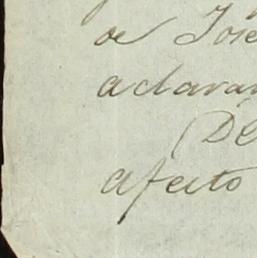 de José
aclara
De
afecto